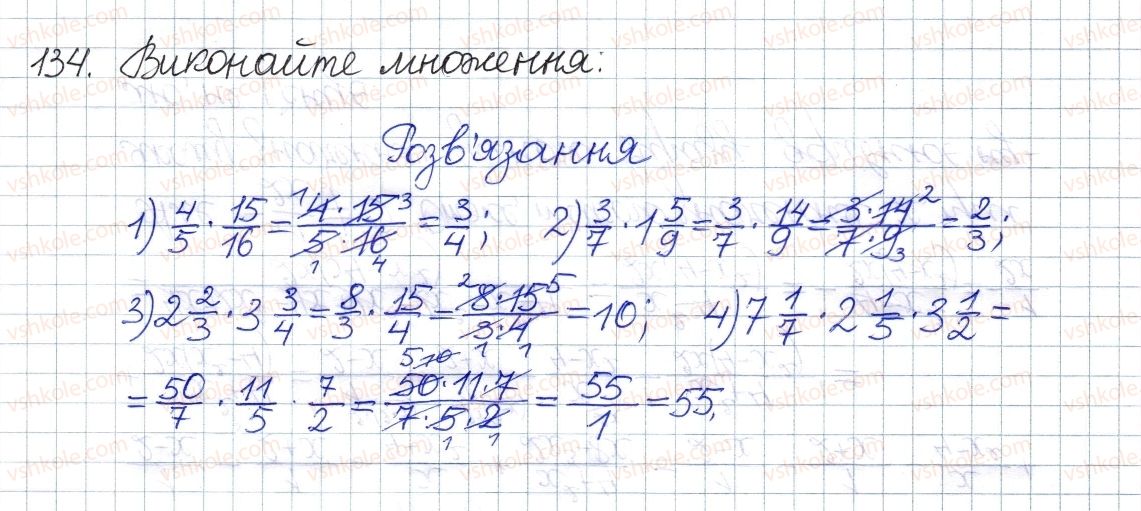 134. Виконайте множення:
Розв'язання
1) 4/5 · 15/16 = 4·15/5·16 = 3/4; 2) 3/7 · 1 5/9 = 3/7 · 14/9 = 3·14/7·9 = 2/3;
3) 2 2/3 · 3 3/4 = 8/3 · 15/4 = 8·15/3·4 = 10; 4) 7 1/7 · 2 1/5 · 3 1/2 =
= 50/7 · 11/5 · 7/2 = 50·11·7/7·5·2 = 55/1 = 55,